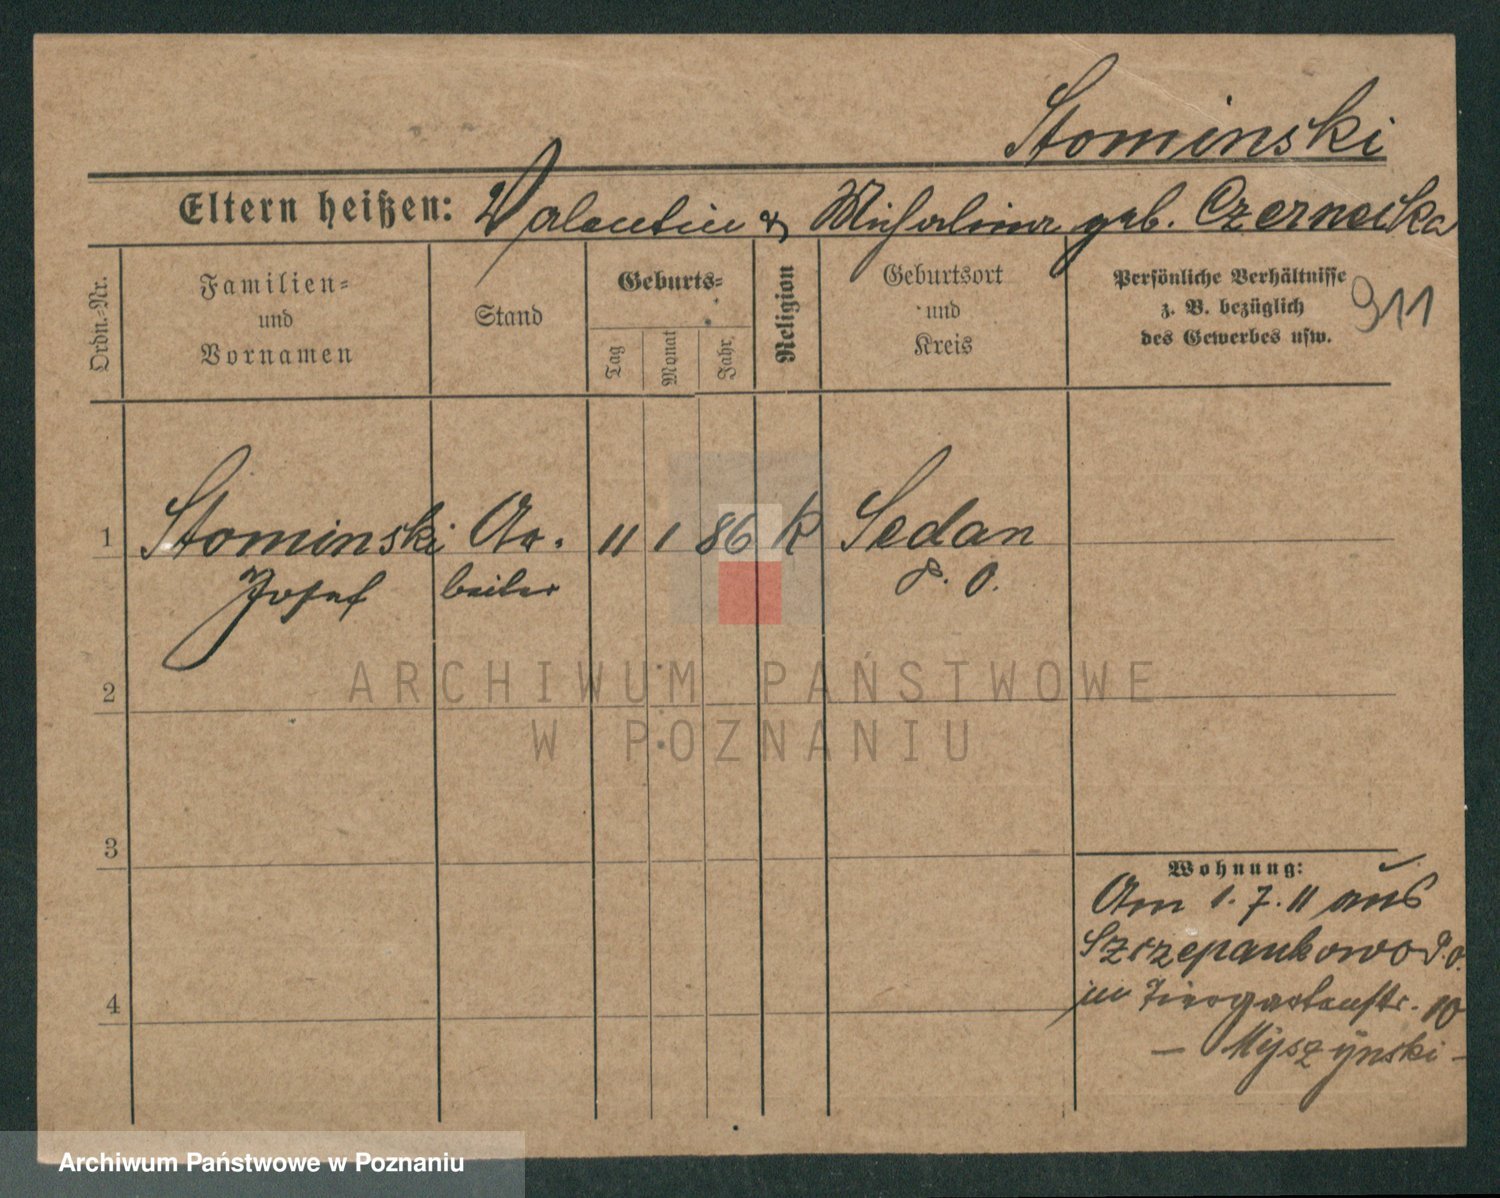 Stominski
Eltern heißen: Valentin & Michalina geb. Czerneika
Ordn.-Nr.
Familien-
und
Vornamen
Stand
Geburts-
Tag
Monat
Jahr
Religion
Geburtsort
und
Kreis
Persönliche Verhältnisse
z. B. bezüglich
des Gewerbes usw.
911
1 Stominski Ar. 11 1 86 K Sedan
Josef beiter P. O.
2
ARCHIWUM PAŃSTWOWE
W POZNANIU
3
Wohnung:
Am 1.7.11 aus
Szczepankowo P.O.
in Tiergartenstr. 10
4
- Myszynski -
Archiwum Państwowe w Poznaniu